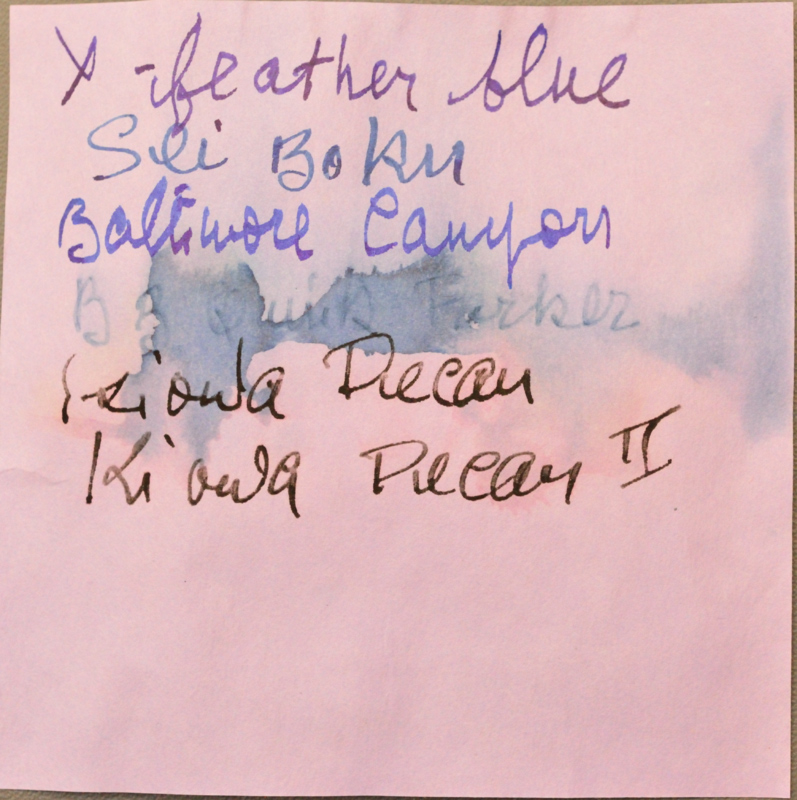 X-feather blue
Sei Boku
Baltimore Canyon
Parker
Kiowa Pecan
Kiowa Pecan II